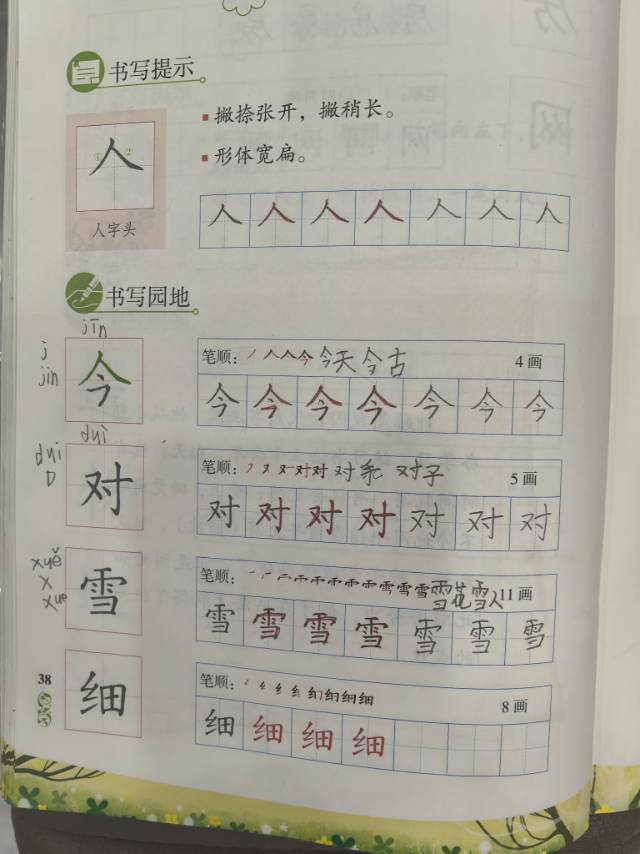 书写提示
撇捺张开，撇稍长。
形体宽扁。
① ②
人
人字头
人 人 人 人 人 人 人
书写园地
jīn
j
jin
今
笔顺： 今 今天 今古 4画
今 今 今 今 今 今 今
duì
dui
D
对
笔顺： 对 对 对子 5画
对 对 对 对 对 对 对
xuě
x
xue
雪
笔顺： 雪 雪花 雪人 11画
雪 雪 雪 雪 雪 雪 雪
38
细
笔顺： 细 8画
细 细 细 细